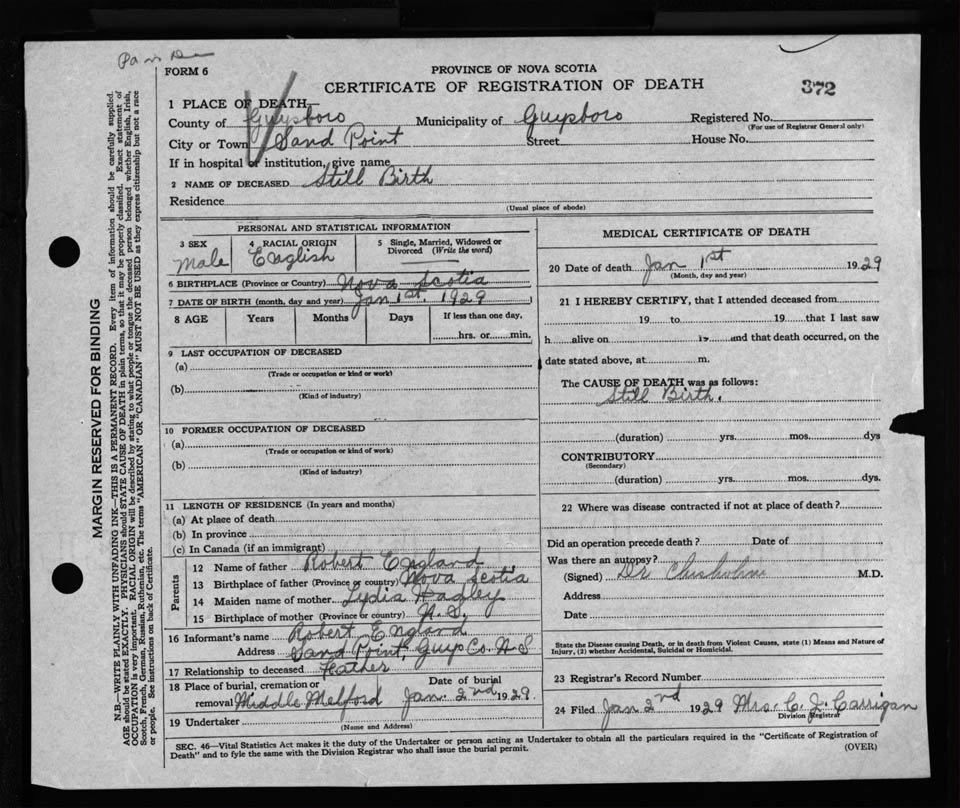 FORM 6
PROVINCE OF NOVA SCOTIA
CERTIFICATE OF REGISTRATION OF DEATH
372
1 PLACE OF DEATH—
County of Guysboro Municipality of Guysboro Registered No.
(For use of Registrar General only)
City or Town Sand Point Street House No.
If in hospital or institution, give name
2 NAME OF DECEASED Still Birth
Residence
(Usual place of abode)
PERSONAL AND STATISTICAL INFORMATION
3 SEX Male
4 RACIAL ORIGIN English
5 Single, Married, Widowed or Divorced (Write the word)
6 BIRTHPLACE (Province or Country) Nova Scotia
7 DATE OF BIRTH (month, day and year) Jan 1st. 1929
8 AGE Years Months Days If less than one day, hrs. or min.
9 LAST OCCUPATION OF DECEASED
(a)
(Trade or occupation or kind or work)
(b)
(Kind of industry)
10 FORMER OCCUPATION OF DECEASED
(a)
(Trade or occupation or kind of work)
(b)
(Kind of industry)
11 LENGTH OF RESIDENCE (In years and months)
(a) At place of death
(b) In province
(c) In Canada (if an immigrant)
Parents
12 Name of father Robert England
13 Birthplace of father (Province or country) Nova Scotia
14 Maiden name of mother Lydia Hagley
15 Birthplace of mother (Province or country) N.S.
16 Informant's name Robert England
Address Sand Point, Guys Co. N S
17 Relationship to deceased Father
18 Place of burial, cremation or removal Middle Melford Date of burial Jan. 2nd 1929.
19 Undertaker
(Name and Address)
MEDICAL CERTIFICATE OF DEATH
20 Date of death Jan 1st 1929
(Month, day and year)
21 I HEREBY CERTIFY, that I attended deceased from
19 to 19 that I last saw
h alive on 19 and that death occurred, on the
date stated above, at m.
The CAUSE OF DEATH was as follows:
Still Birth.
(duration) yrs. mos. dys
CONTRIBUTORY
(Secondary)
(duration) yrs. mos. dys.
22 Where was disease contracted if not at place of death?
Did an operation precede death? Date of
Was there an autopsy?
(Signed) Dr Chisholm M.D.
Address
Date
State the Disease causing Death, or in death from Violent Causes, state (1) Means and Nature of
Injury, (2) whether Accidental, Suicidal or Homicidal.
23 Registrar's Record Number
24 Filed Jan 2nd 1929 Mrs. C. J. Carrigan
Division Registrar
SEC. 46—Vital Statistics Act makes it the duty of the Undertaker or person acting as Undertaker to obtain all the particulars required in the "Certificate of Registration of
Death" and to fyle the same with the Division Registrar who shall issue the burial permit.
(OVER)
MARGIN RESERVED FOR BINDING
N.B.—WRITE PLAINLY WITH UNFADING INK—THIS IS A PERMANENT RECORD. Every item of information should be carefully supplied.
AGE should be stated EXACTLY. PHYSICIANS should STATE CAUSE OF DEATH in plain terms, so that it may be properly classified. Exact statement of
OCCUPATION is very important. RACIAL ORIGIN will be described by stating to what people or tongue the deceased person belonged whether English, Irish,
Scotch, French, German, Russian, Ruthenian, etc. The terms "AMERICAN" OR "CANADIAN" MUST NOT BE USED as they express citizenship but not a race
or people. See instructions on back of Certificate.